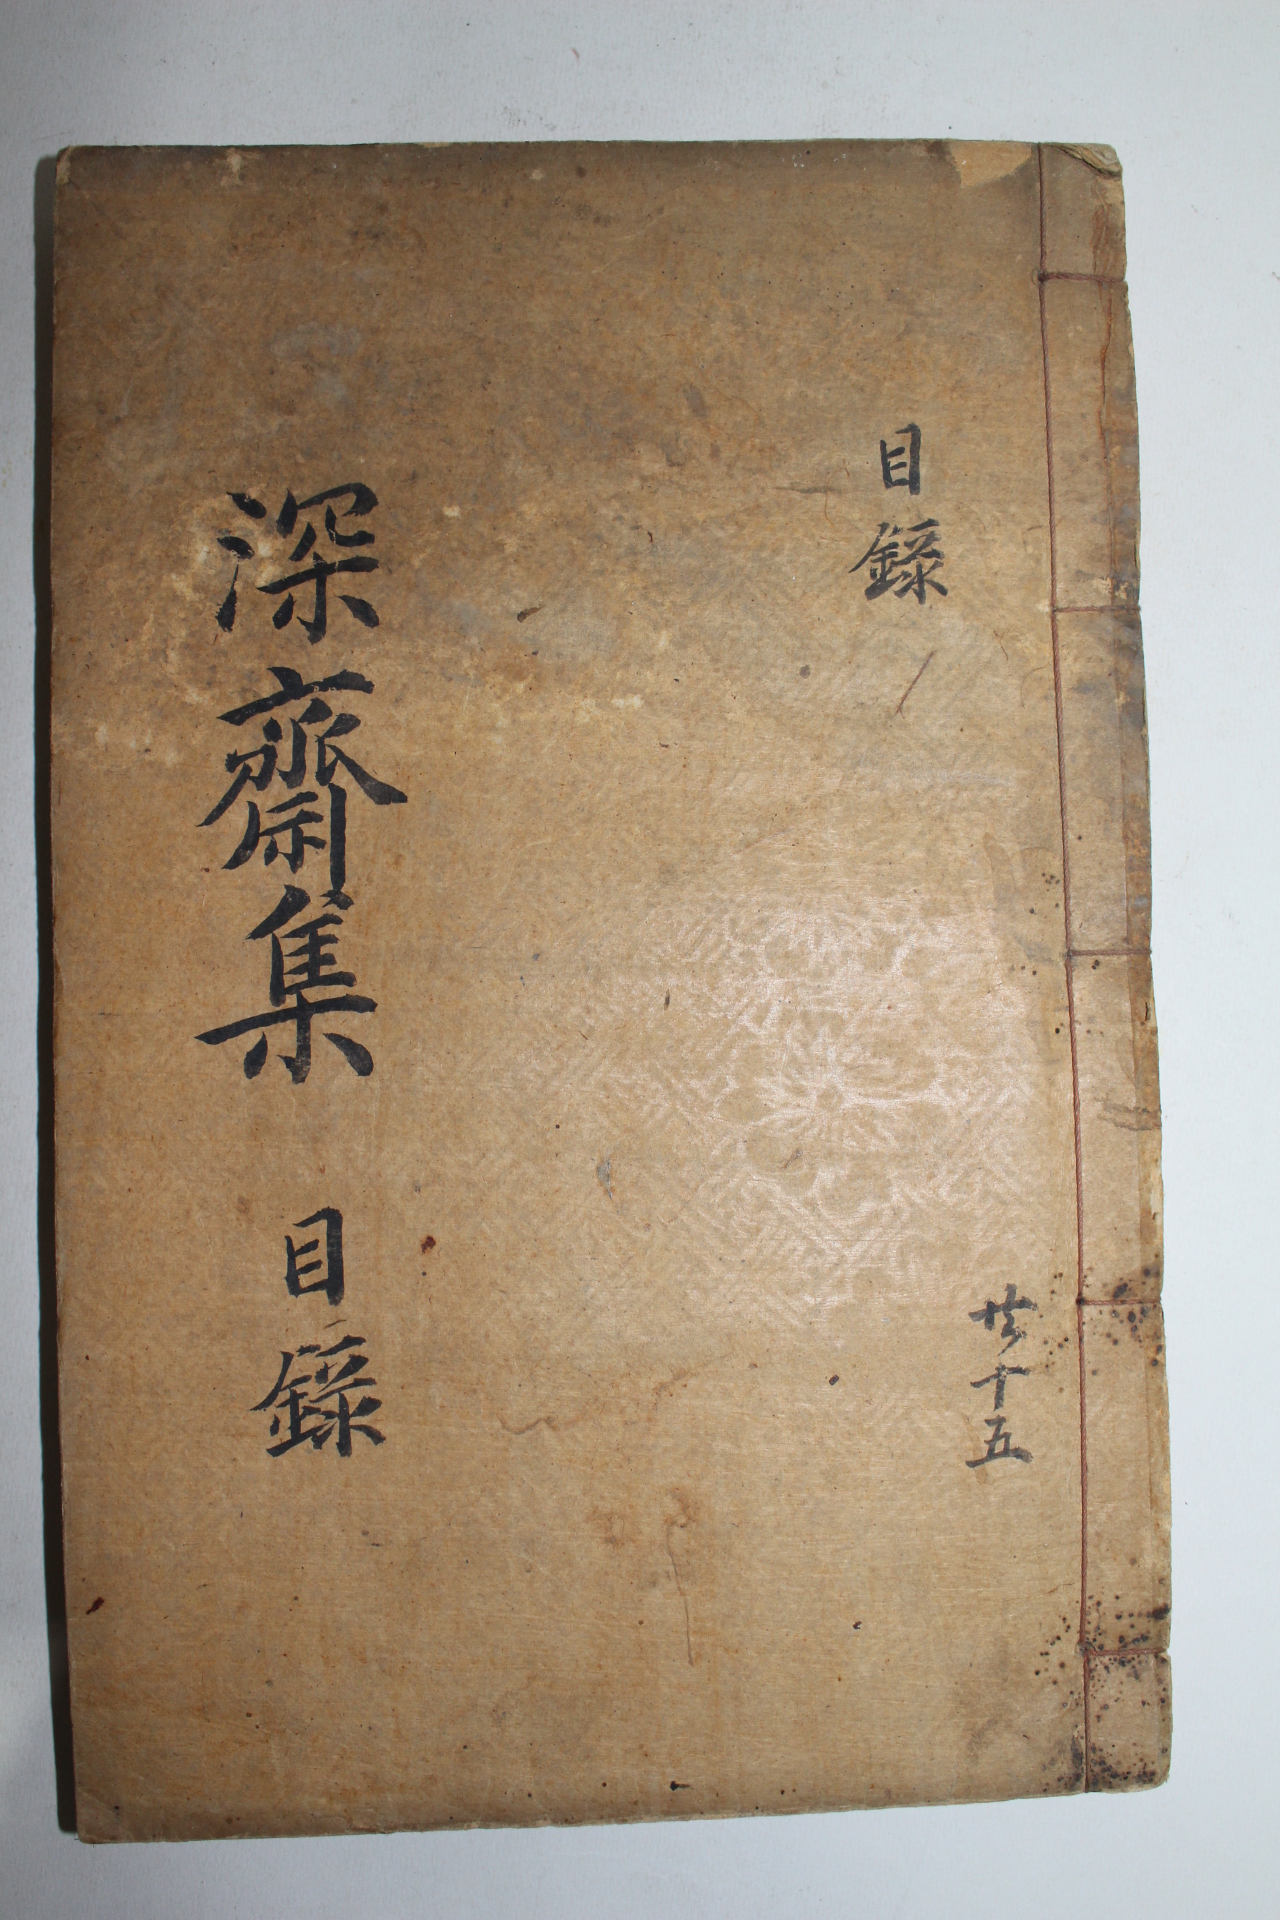 共十五
目錄
深齋集 目錄